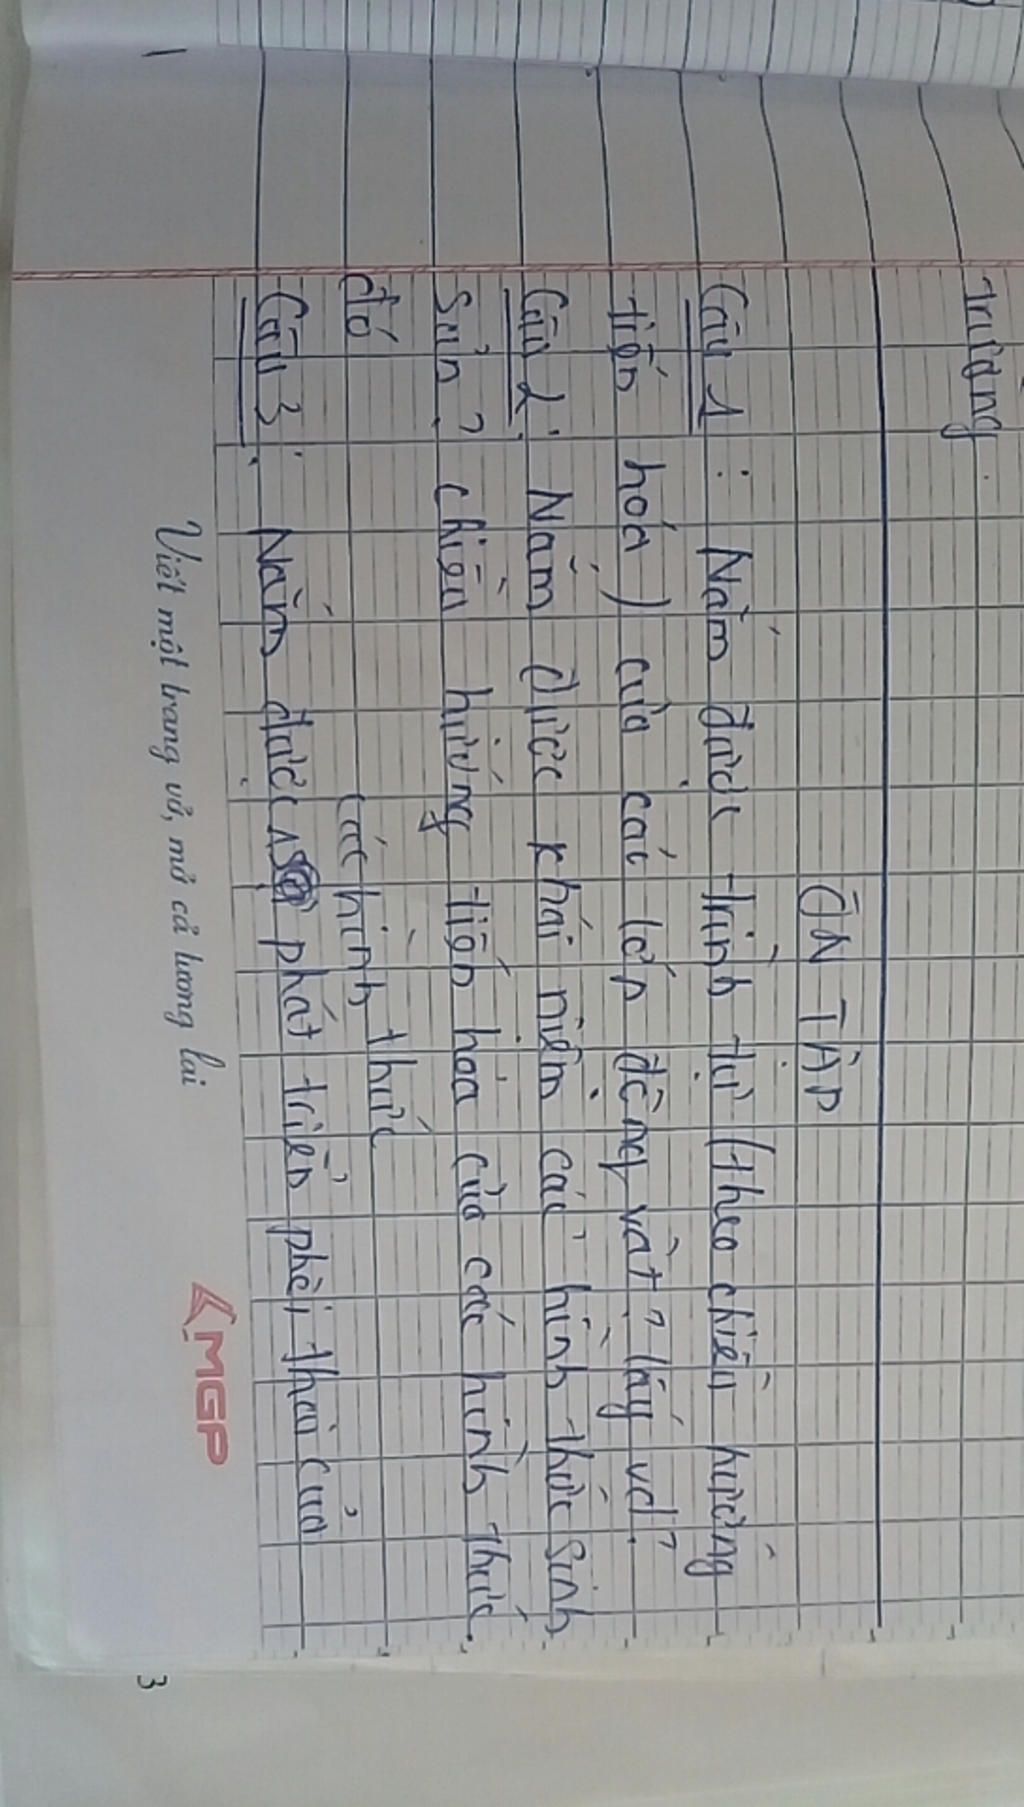 trường.
ÔN TẬP
Câu 1: Nắm được trình tự (theo chiều hướng
tiến hóa) của các lớp động vật? lấy vd?
Câu 2: Nắm được khái niệm các hình thức sinh
sản? chiều hướng tiến hóa của các hình thức
đó
các hình thức
Câu 3: Nắm được sự phát triển phôi thai của
Viết một trang vở, mở cả tương lai
MGP
3